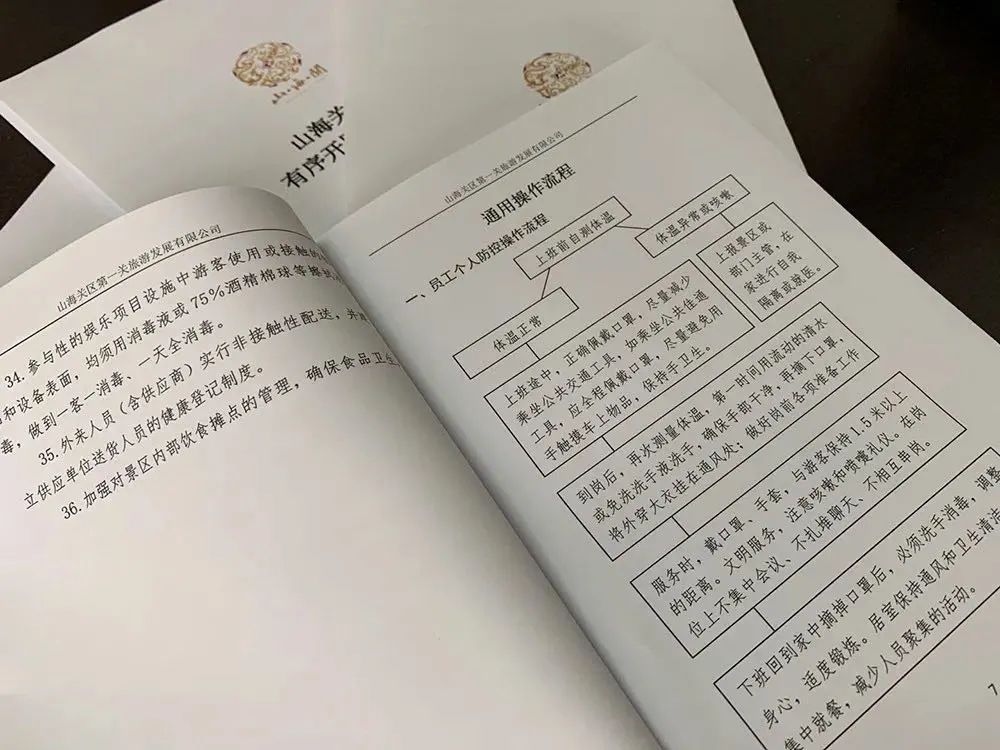 山·海·关
山海关
有序开
山海关区第一关旅游发展有限公司
34.参与性的娱乐项目设施中游客使用或接触的
和设备表面，均须用消毒液或75%酒精棉球等擦拭
毒，做到一客一消毒、一天全消毒。
35.外来人员（含供应商）实行非接触性配送，并
立供应单位送货人员的健康登记制度。
36.加强对景区内部饮食摊点的管理，确保食品卫生
山海关区第一关旅游发展有限公司
通用操作流程
一、员工个人防控操作流程
上班前自测体温
体温异常或咳嗽
上报景区或
部门主管，在
家进行自我
隔离或就医。
体温正常
上班途中，正确佩戴口罩，尽量减少
乘坐公共交通工具，如乘坐公共佳通
工具，应全程佩戴口罩，尽量避免用
手触摸车上物品，保持手卫生。
到岗后，再次测量体温，第一时间用流动的清水
或免洗洗手液洗手，确保手部干净，再摘下口罩，
将外穿大衣挂在通风处；做好岗前各项准备工作
服务时，戴口罩、手套，与游客保持1.5米以上
的距离。文明服务，注意咳嗽和喷嚏礼仪。在岗
位上不集中会议、不扎堆聊天、不相互串岗。
下班回到家中摘掉口罩后，必须洗手消毒，调整
身心，适度锻炼。居室保持通风和卫生清洁
集中就餐，减少人员聚集的活动。
7